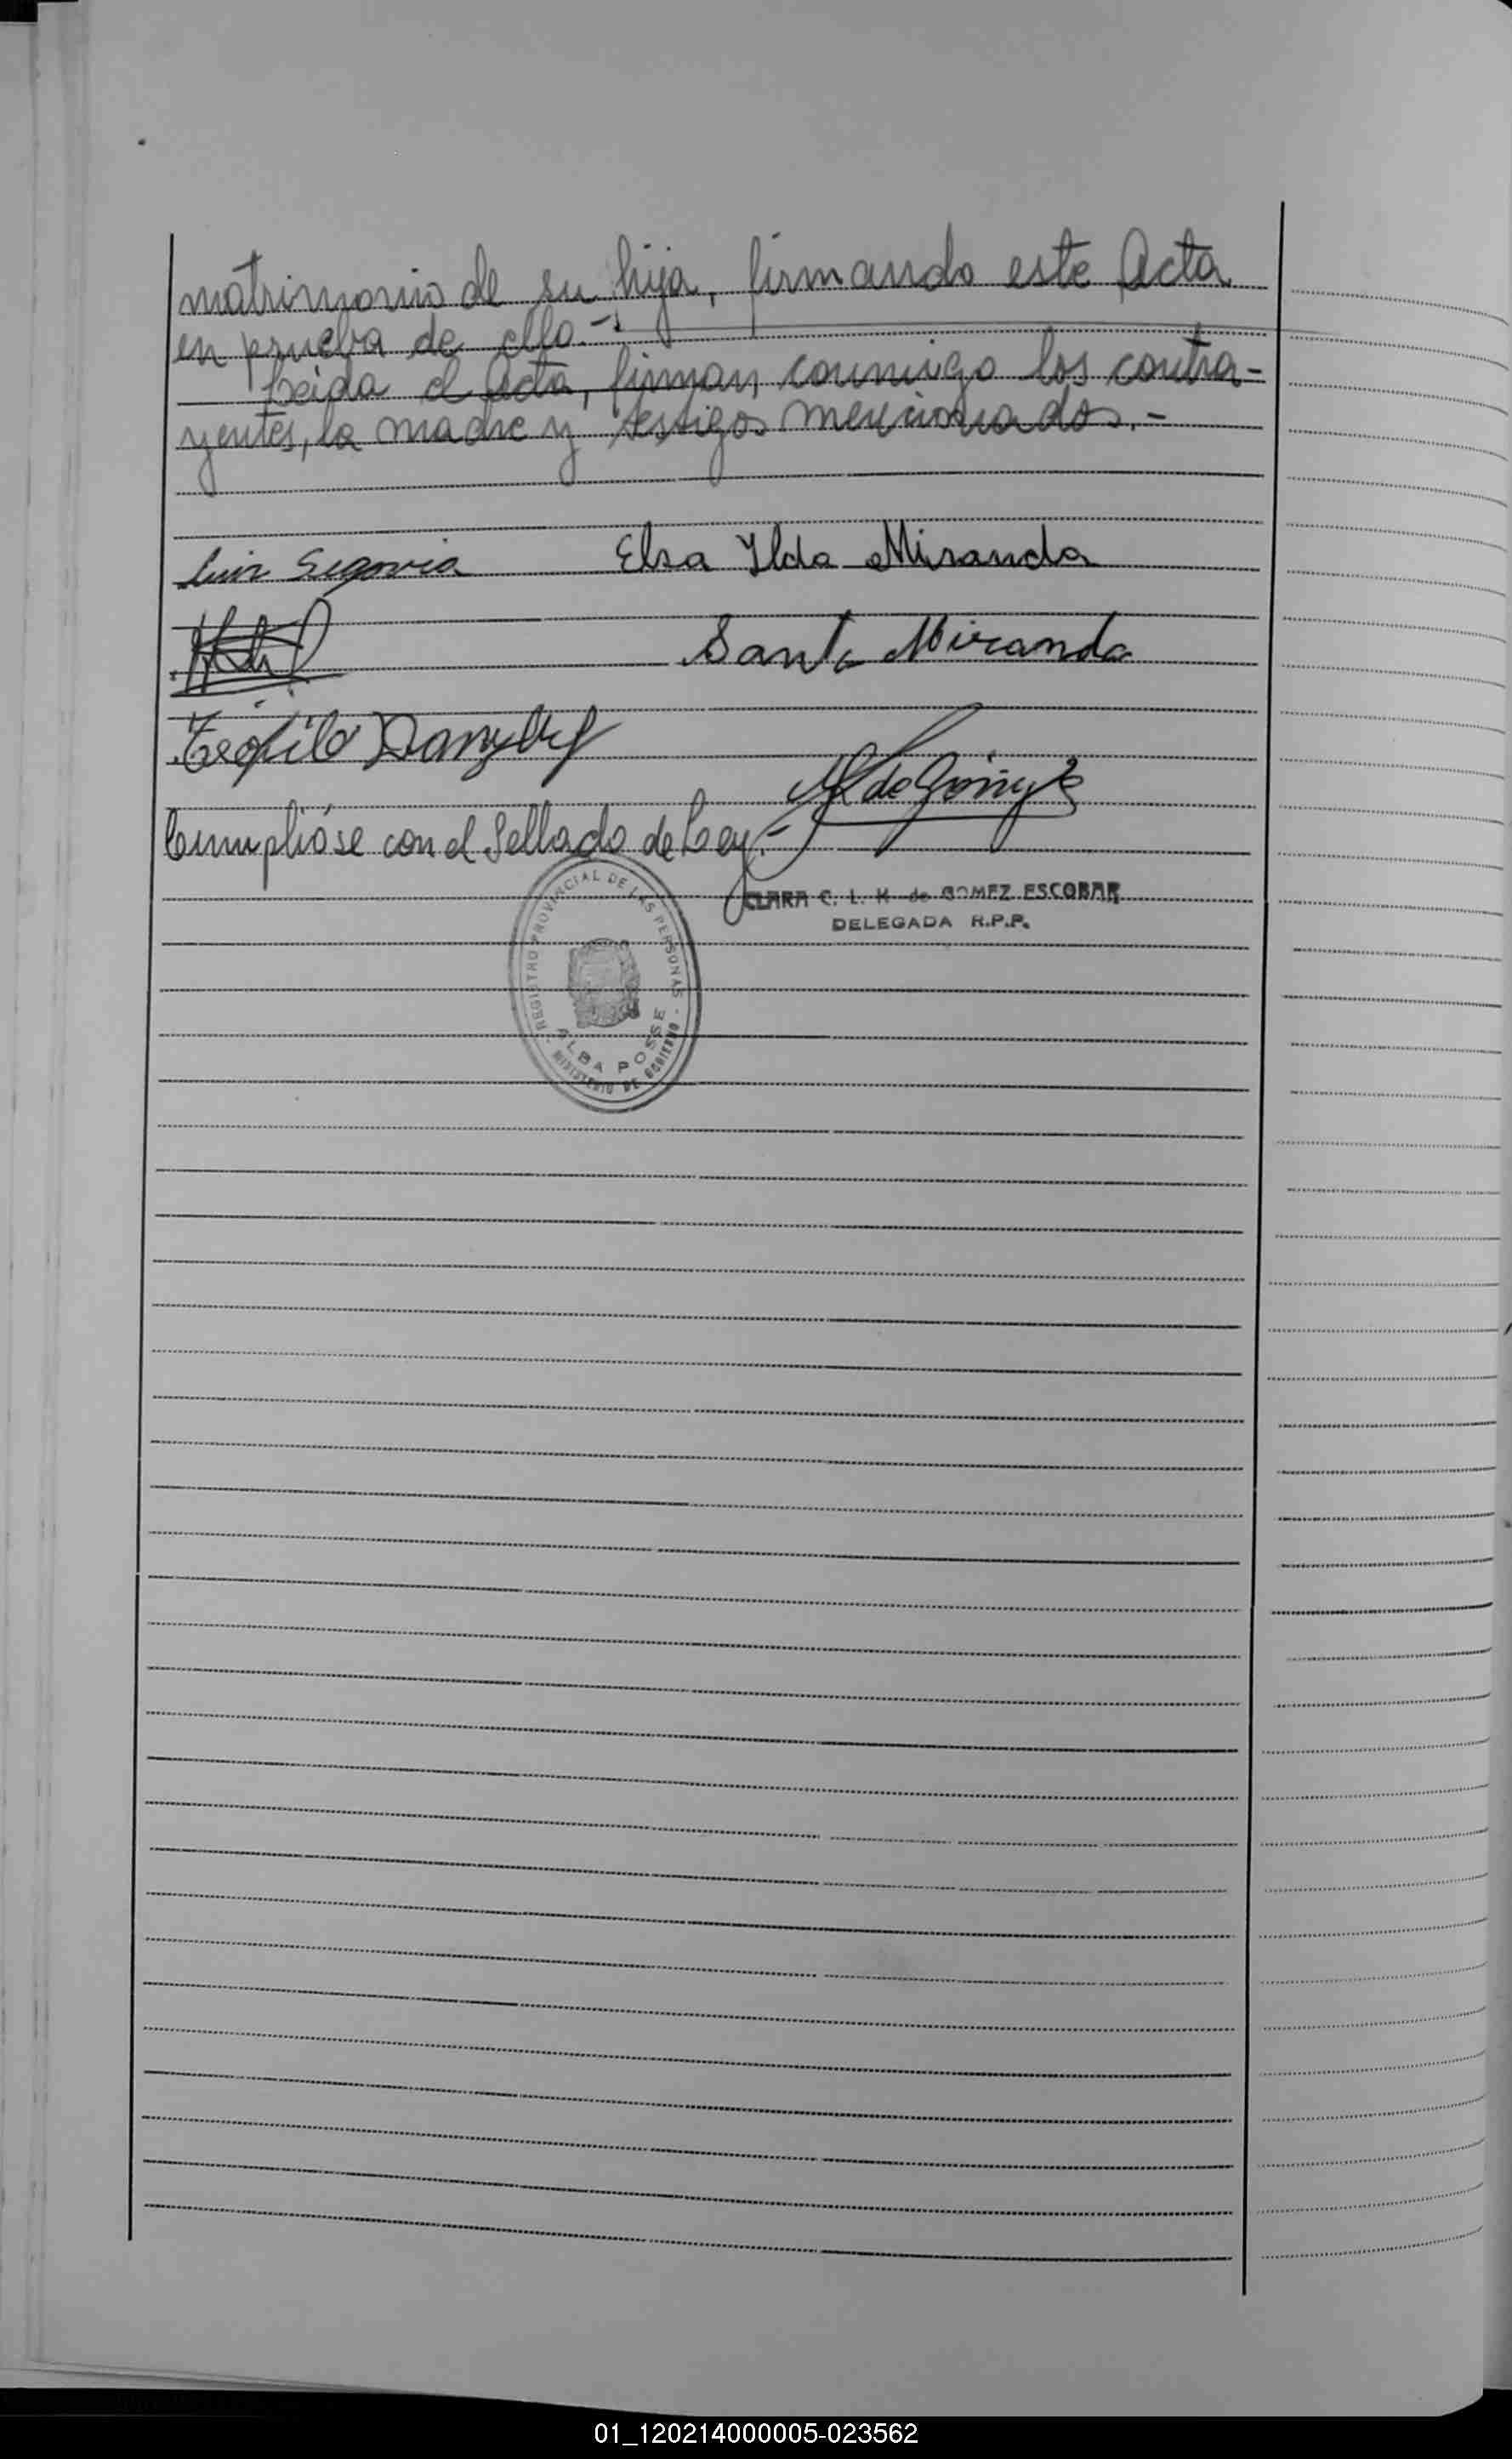 matrimonio de su hija, firmando este Acta
en prueba de ello.-
Leida el Acta, firman conmigo los contra-
yentes, la madre y testigos mencionados.-
Luis Segovia Elsa Ylda Miranda
Santa Miranda
Teófilo
de Gómez
Cumplióse con el Sellado de Ley.-
CLARA C. L. K. de GOMEZ ESCOBAR
DELEGADA R.P.P.
REGISTRO PROVINCIAL DE LAS PERSONAS
ALBA POSSE
MINISTERIO DE GOBIERNO
01_120214000005-023562